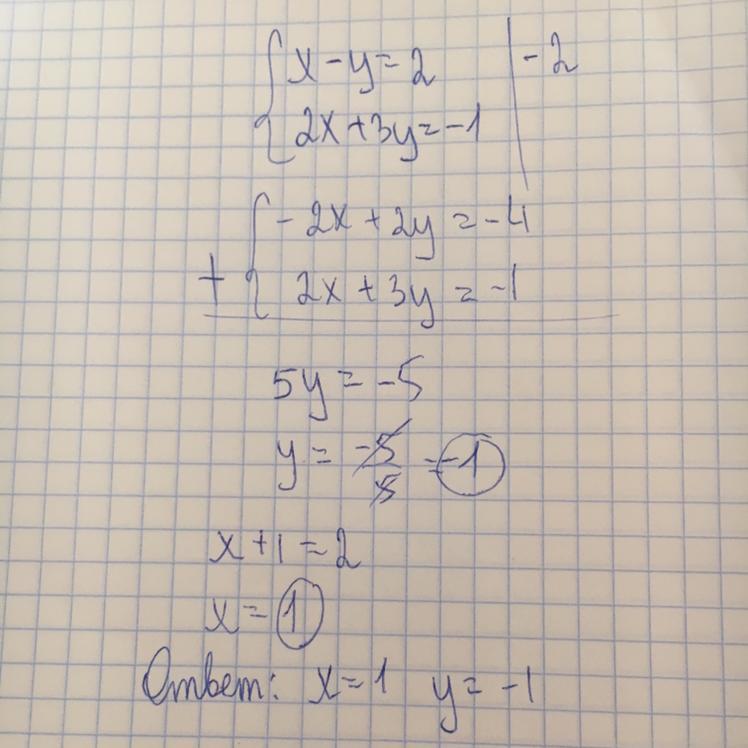 { x - y = 2 | -2
{ 2x + 3y = -1
{ - 2x + 2y = -4
+ { 2x + 3y = -1
5y = -5
y = -5/5 = -1
x + 1 = 2
x = 1
Ответ: x = 1 y = -1